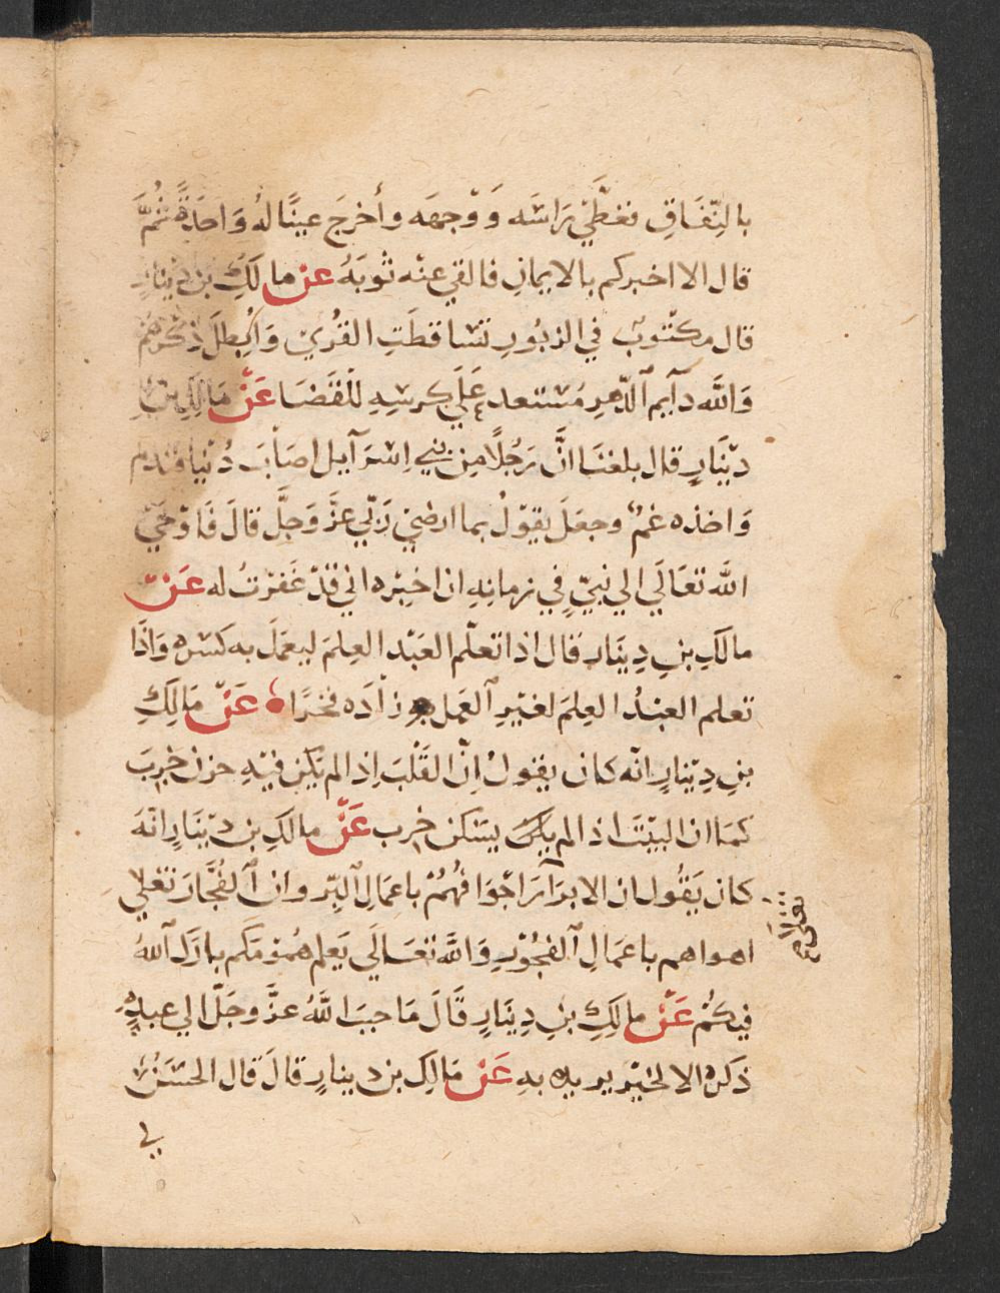 بالنِّفَاقِ فغطَّيْ رَاسَه وَوْجهَه وأخرَج عينًا لهُ وَاحَدَةً ثُمَّ
قال الا اخبركم بالايمانِ فالقي عنْه ثوبَهُ عنْ مالَكِ بن دِينارٍ
قال مكتُوبٌ في الزبُورِ تتسَاقطَتِ القرُيْ وَابُطلَ ذِكرهُمْ
وَاللَّه دآيم الدَّهرِ مُستعد عَلَي كرسيهِ للقَضَا عَنْ مَالِكِ بن
ديْنَارٍ قال بلغنَا انَّ رَجُلًا مِن بني اِسْرَآيل اصَابَ دُنْيا فندم
وَاخذه غمٌ وجعَلَ يقوْلُ بما ارضيْ رَبّي عزَّ وَجلَّ قالَ فَاوْحَيْ
اللَّه تعَالَي الي نبيٍّ فِي زمانِهِ ان اخبِرْه اني قدْ غَفرْتُ له عَنْ
مالَكِ بنِ دِينَار قال اذا تعلّم العَبْد العِلمَ ليعمَلَ به كسَره وَاذَا
تعلم العبْدُ العِلمَ لغيْرِ العَمل زَادَه فخرًا عَنْ مَالِكِ
بنِ دِيْنارٍ انّه كان يقولُ اِنَّ القَلْبَ اِذ الم يَكن فيْهِ حزن خرِبَ
كمَا ان البيْتَ اذ الم يكن يسْكن خرب عَنْ مالكِ بن ديْنَارٍ انّهَ
كان يَقُول ان الابرَآرَ اجْوَافهُمْ باعمَالِ البِّر وان الفُجَّارَ تغلي
اهواهم باعمَالِ الفجُوْرِ وَاللَّه تعَالَي يَعلم همُوْمَكم بارَك اللهُ
فيكُمْ عَنْ مالَكِ بنِ دِينَارٍ قَالَ مَا حببَ اللَّهُ عزَّ وجَلَّ الي عبدٍ
ذكره الا لخيْرٍ يريده بهِ عَنْ مَالِك بن دينارٍ قالَ قال الحسَنُ